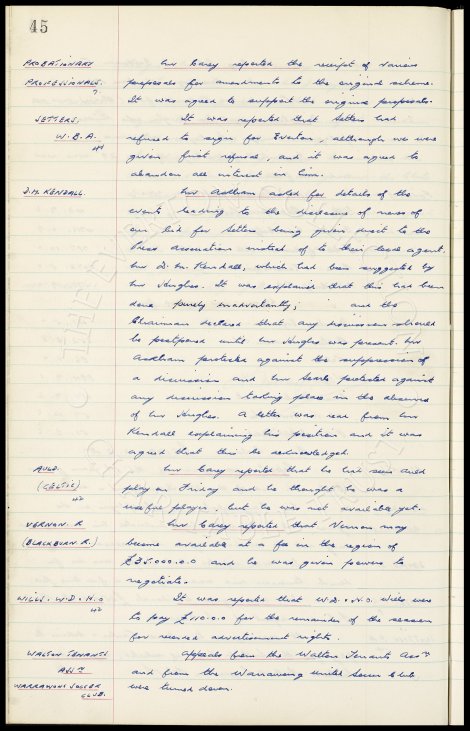 45
PROBATIONARY Mr Carey reported the receipt of various
PROFESSIONALS. proposals for amendments to the original scheme.
? It was agreed to support the original proposals.
SETTERS. It was reported that Setters had
W.B.A. refused to sign for Everton, although we were
given first refusal, and it was agreed to
abandon all interest in him.
D.M. KENDALL. Mr Askham asked for details of the
events leading to the disclosure of news of
our bid for Setters being given direct to the
Press association instead of to their local agent.
Mr D. M. Kendall, which had been suggested by
Mr Hughes. It was explained that this had been
done purely inadvertantly; and the
Chairman declared that any discussion should
be postponed until Mr Hughes was present. Mr
Askham protected against the suppression of
a discussion and Mr Searle protected against
any discussion taking place in the absence
of Mr Hughes. A letter was read from Mr
Kendall explaining his position and it was
agreed that this be acknowledged.
AULD. Mr Carey reported that he had seen Auld
(CELTIC) play on Friday and he thought he was a
42 useful player, but he was not available yet.
VERNON. R Mr Carey reported that Vernon may
(BLACKBURN R.) become available at a fee in the region of
£35.000.0.0 and he was given powers to
negotiate.
WILLS. W.D. & H.O It was reported that W.D. & H.O. Wills were
42 to pay £110.0.0 for the remainder of the season
for received advertisement rights.
WALTON TENANTS Appeals from the Walton Tenants Assn
ASSN and from the Warrawong United Soccer Club
WARRAWONG SOCCER were turned down.
CLUB.